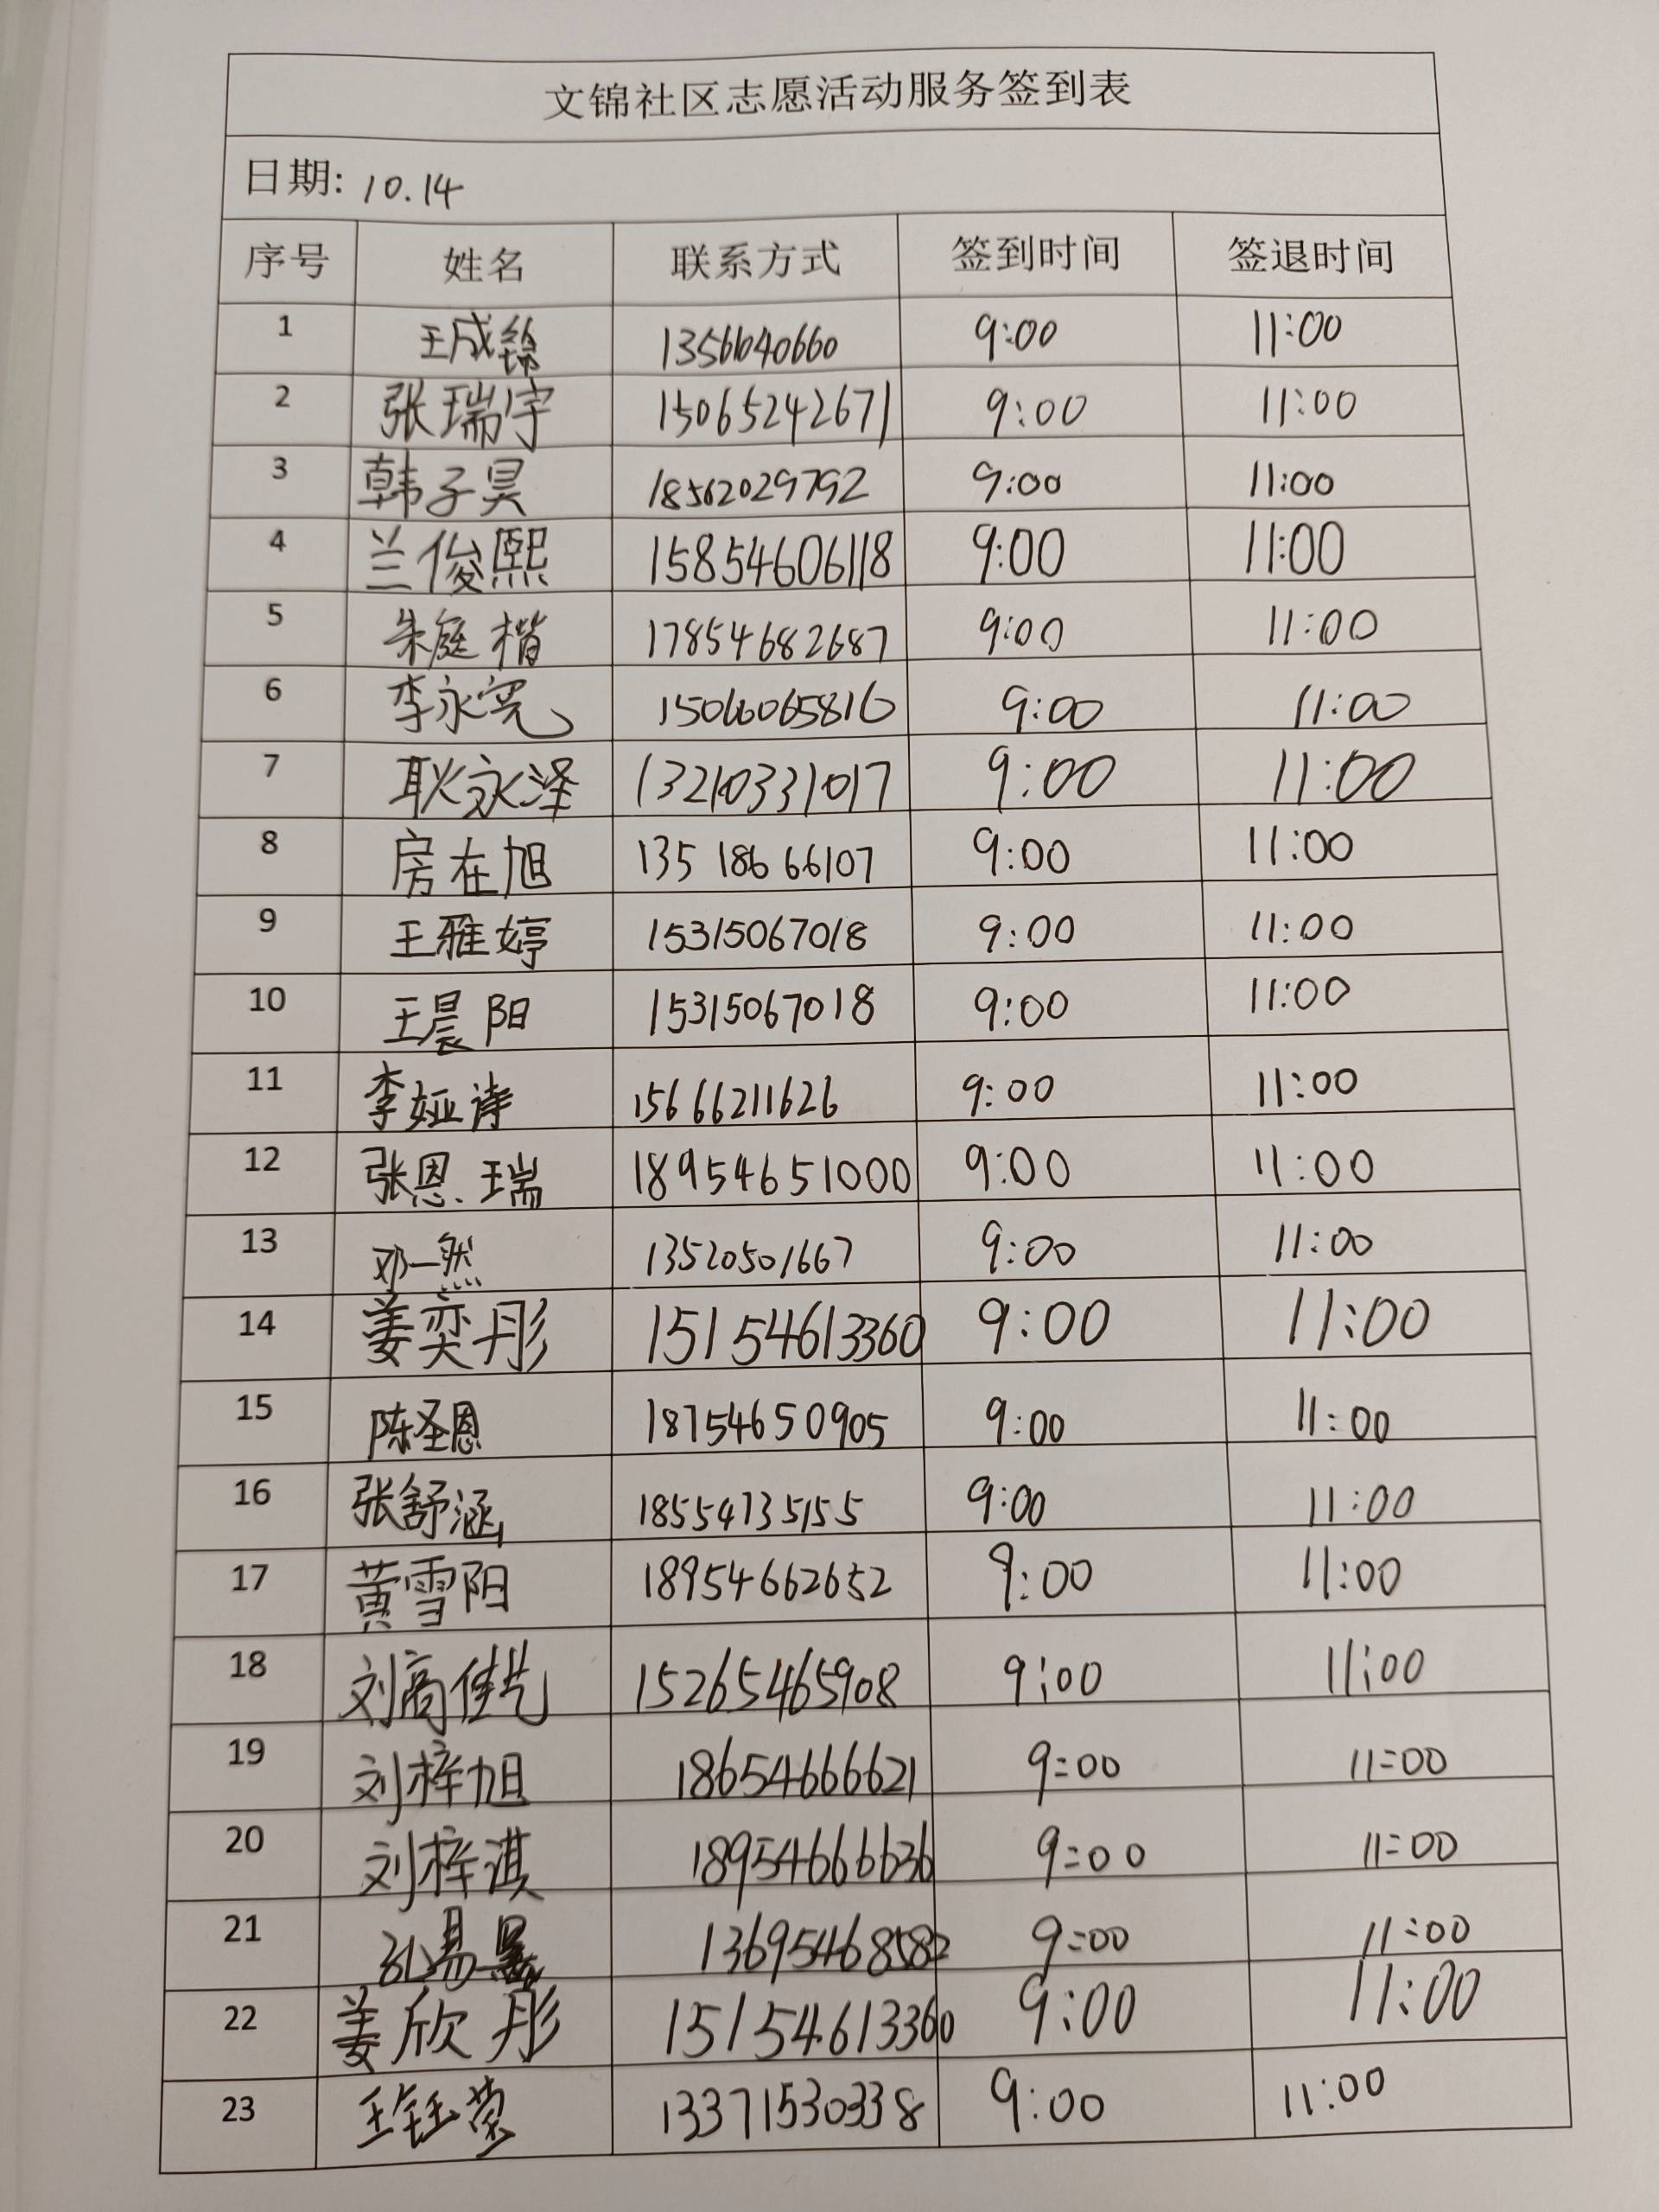 文锦社区志愿活动服务签到表
日期: 10.14
序号 姓名 联系方式 签到时间 签退时间
1 王成锦 13561040660 9:00 11:00
2 张瑞宇 15065242671 9:00 11:00
3 韩子昊 18562029792 9:00 11:00
4 兰俊熙 15854606118 9:00 11:00
5 朱庭楷 17854682687 9:00 11:00
6 李永宽 15066065816 9:00 11:00
7 耿永泽 13210331017 9:00 11:00
8 房在旭 135 186 66107 9:00 11:00
9 王雅婷 15315067018 9:00 11:00
10 王晨阳 15315067018 9:00 11:00
11 李娅诗 15666211626 9:00 11:00
12 张恩瑞 18954651000 9:00 11:00
13 邓一然 13520501667 9:00 11:00
14 姜奕彤 15154613360 9:00 11:00
15 陈圣恩 18754650905 9:00 11:00
16 张舒涵 18554735155 9:00 11:00
17 黄雪阳 18954662652 9:00 11:00
18 刘商佳艺 15265465908 9:00 11:00
19 刘梓旭 18654666621 9:00 11:00
20 刘梓淇 18954666636 9:00 11:00
21 孔易 13695468582 9:00 11:00
22 姜欣彤 15154613360 9:00 11:00
23 王钰莹 13371530338 9:00 11:00